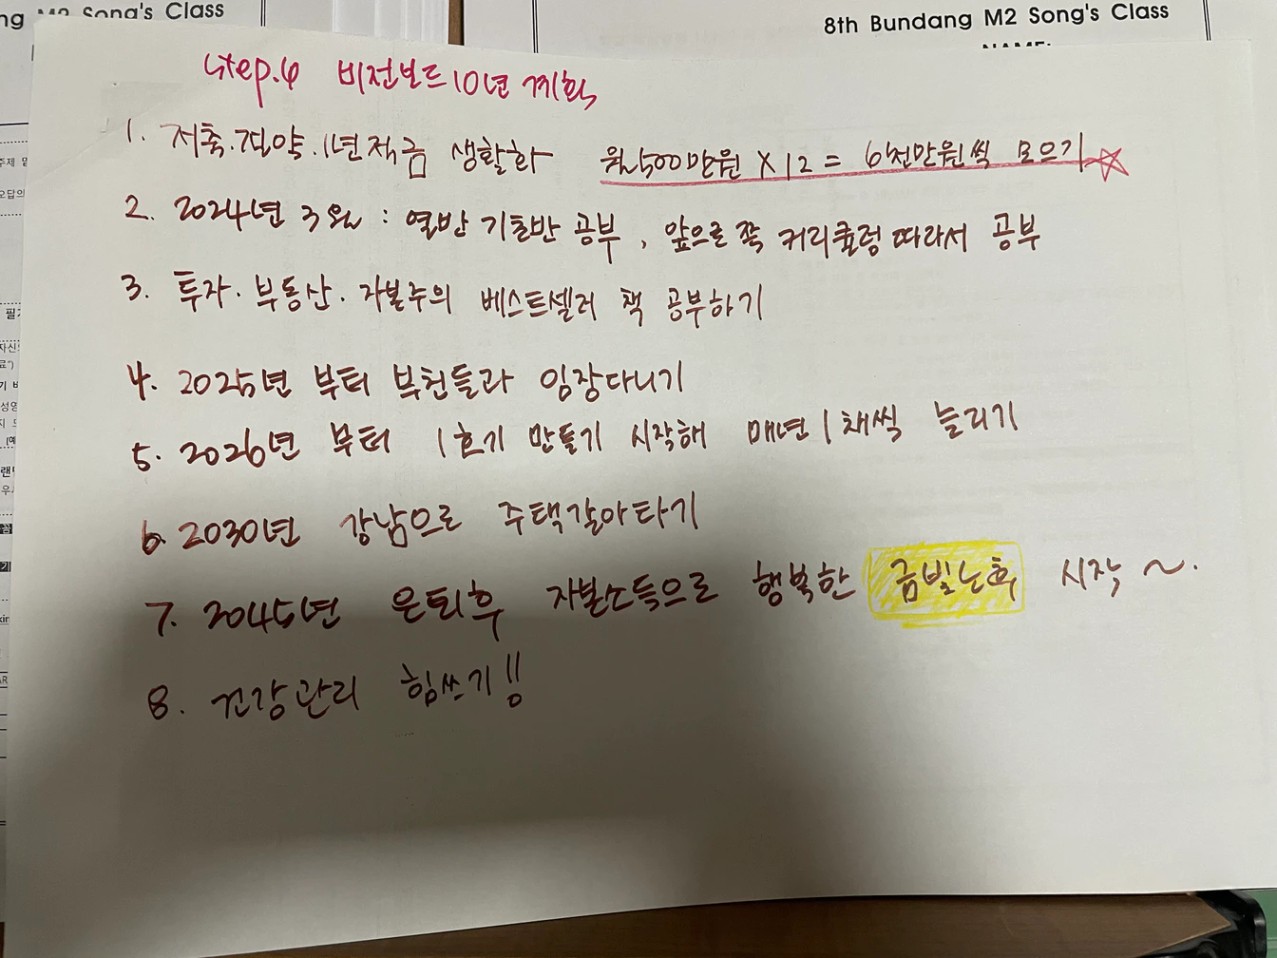 ng M2 Song's Class
8th Bundang M2 Song's Class
Step.4 비전보드 10년 계획
1. 저축.절약.1년적금 생활화 월500만원 X 12 = 6천만원씩 모으기
2. 2024년 3월 : 열반 기초반 공부, 앞으로 쭉 커리큘럼 따라서 공부
3. 투자. 부동산. 자본주의 베스트셀러 책 공부하기
4. 2025년 부터 부천들과 임장다니기
5. 2026년 부터 1호기 만들기 시작해 매년 1채씩 늘리기
6. 2030년 강남으로 주택갈아타기
7. 2045년 은퇴후 자본소득으로 행복한 금빛노후 시작 ~.
8. 건강관리 힘쓰기!!